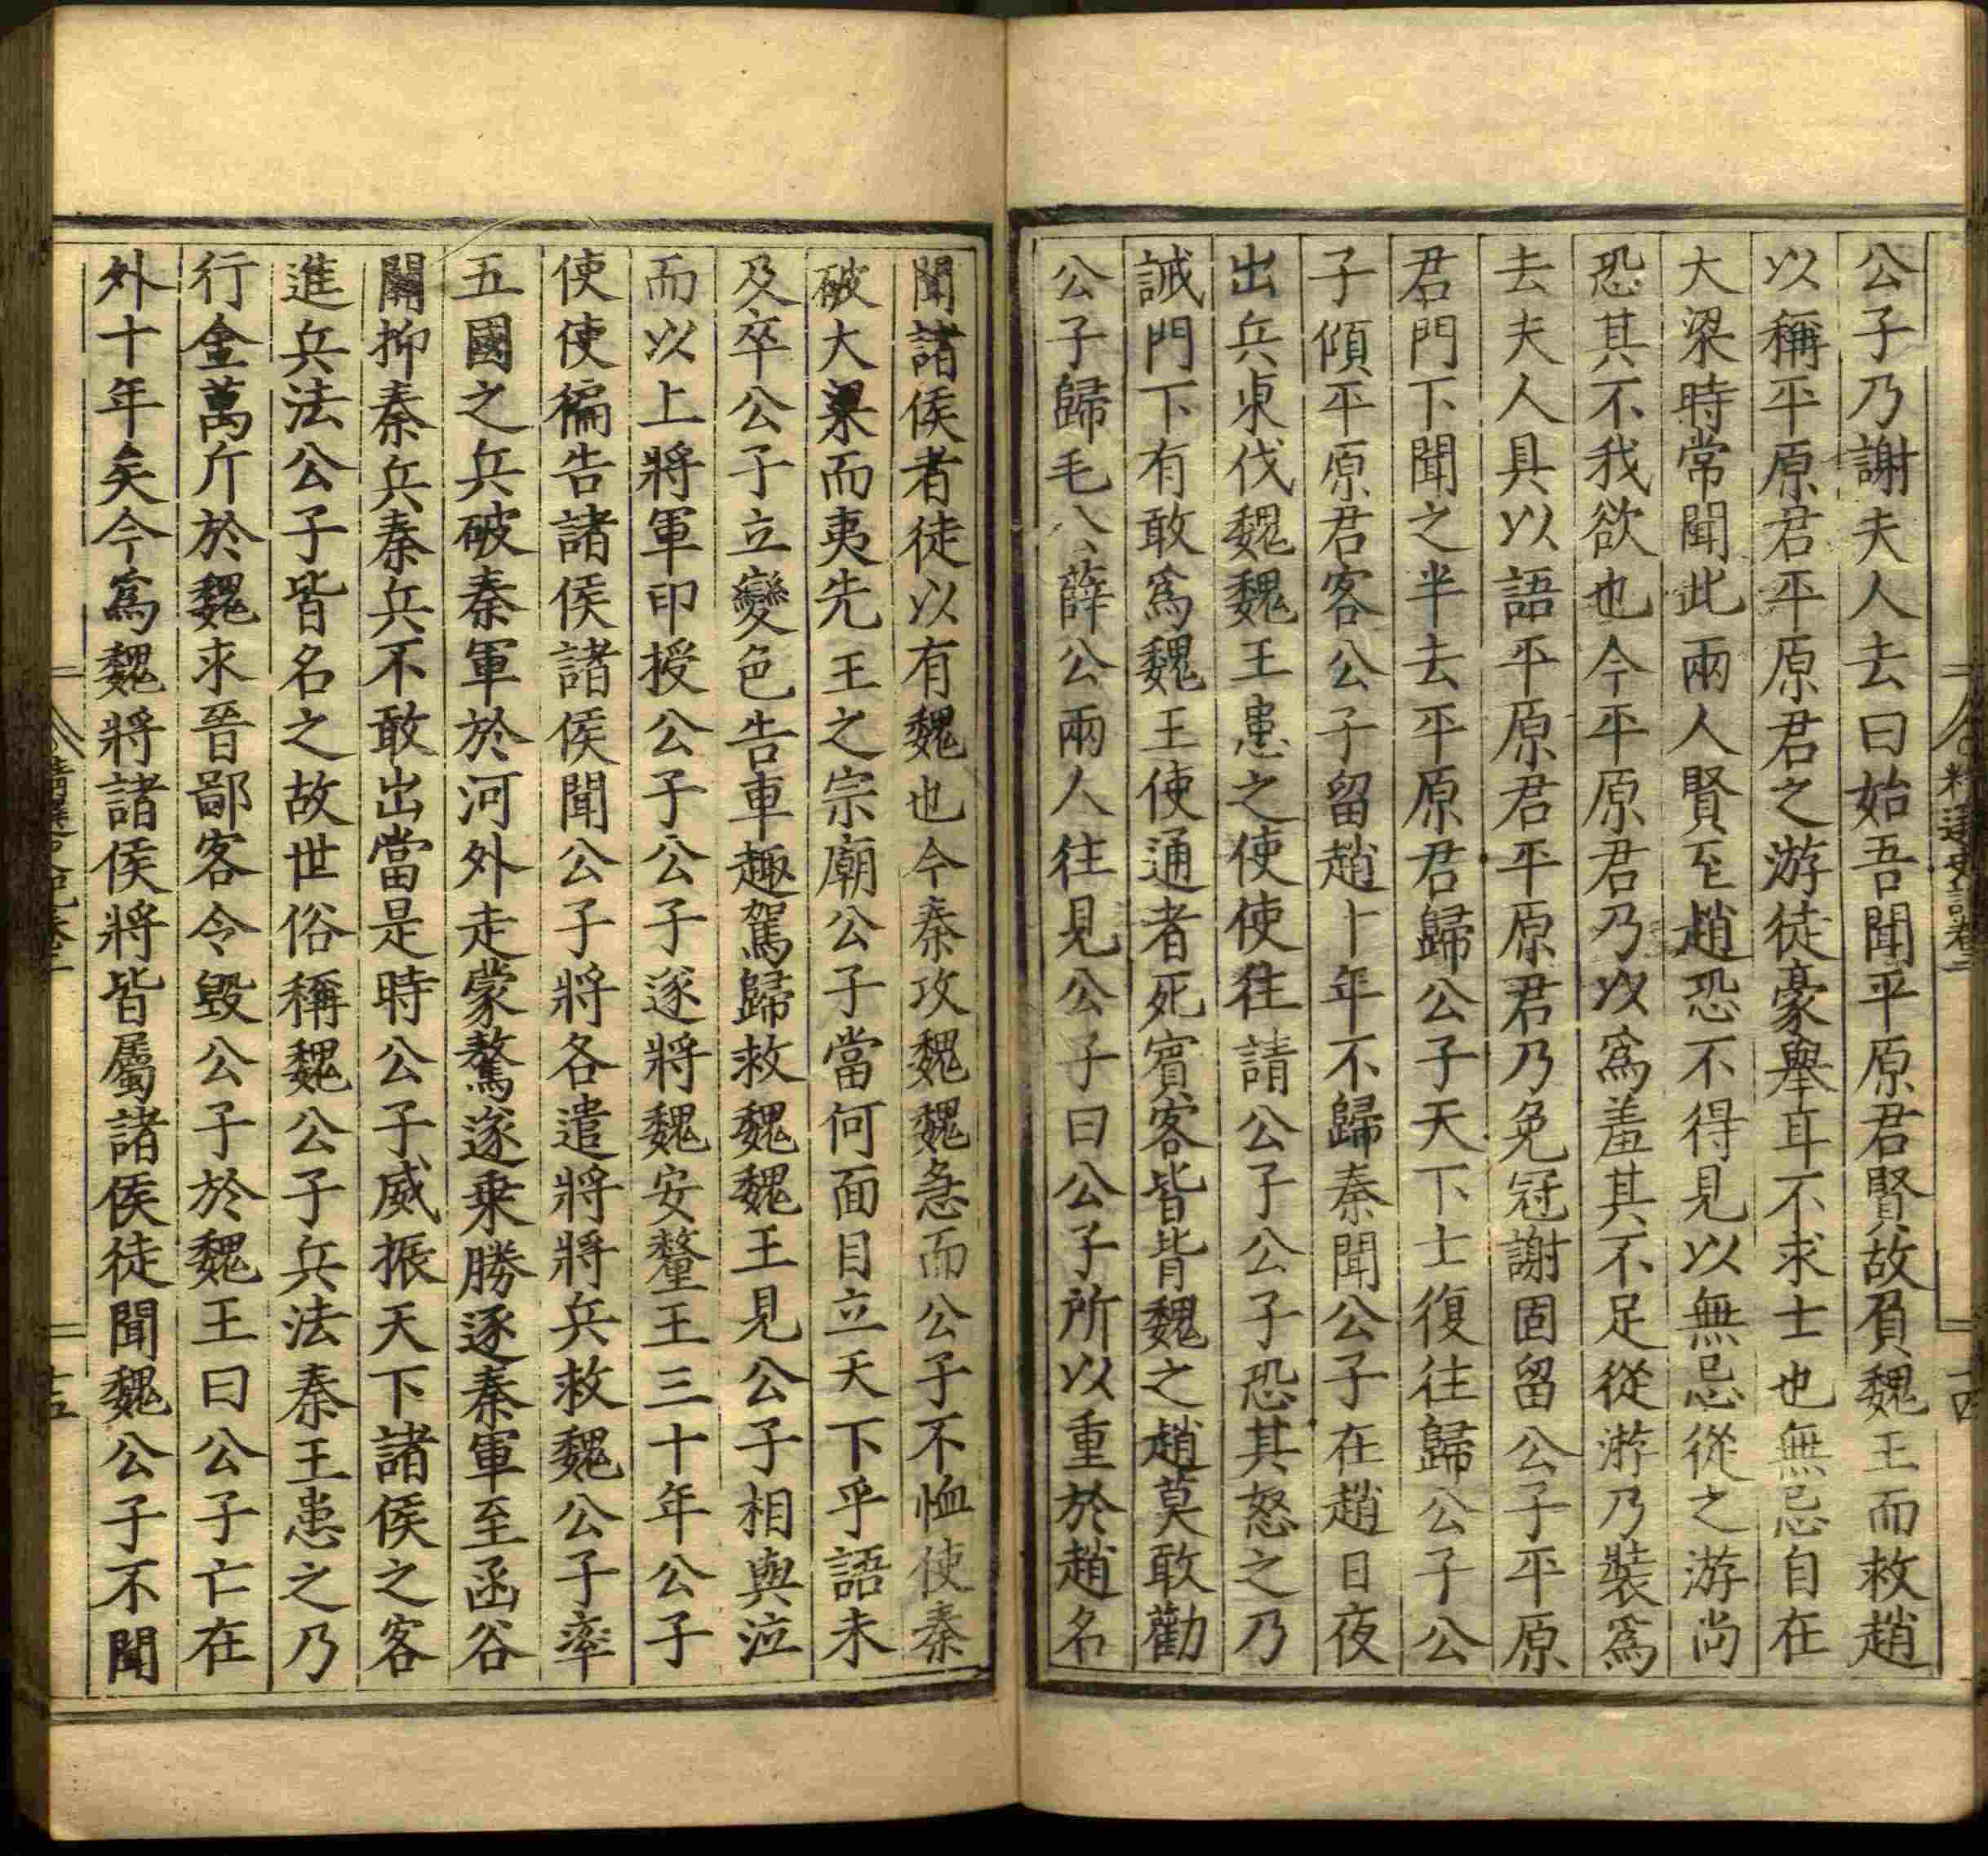 公子乃謝夫人去曰始吾聞平原君賢故負魏王而救趙
以稱平原君平原君之游徒豪舉耳不求士也無忌自在
大梁時常聞此兩人賢至趙恐不得見以無忌從之游尚
恐其不我欲也今平原君乃以爲羞其不足從游乃裝爲
去夫人具以語平原君平原君乃免冠謝固留公子平原
君門下聞之半去平原君歸公子天下士復往歸公子公
子傾平原君客公子留趙十年不歸秦聞公子在趙日夜
出兵東伐魏魏王患之使使往請公子公子恐其怒之乃
誡門下有敢爲魏王使通者死賓客皆背魏之趙莫敢勸
公子歸毛公薛公兩人往見公子曰公子所以重於趙名
精選史記卷三
十四
聞諸侯者徒以有魏也今秦攻魏魏急而公子不恤使秦
破大梁而夷先王之宗廟公子當何面目立天下乎語未
及卒公子立變色告車趣駕歸救魏魏王見公子相與泣
而以上將軍印授公子公子遂將魏安釐王三十年公子
使使徧告諸侯諸侯聞公子將各遣將將兵救魏公子率
五國之兵破秦軍於河外走蒙驁遂乘勝逐秦軍至函谷
關抑秦兵秦兵不敢出當是時公子威振天下諸侯之客
進兵法公子皆名之故世俗稱魏公子兵法秦王患之乃
行金萬斤於魏求晉鄙客令毀公子於魏王曰公子亡在
外十年矣今爲魏將諸侯將皆屬諸侯徒聞魏公子不聞
十五